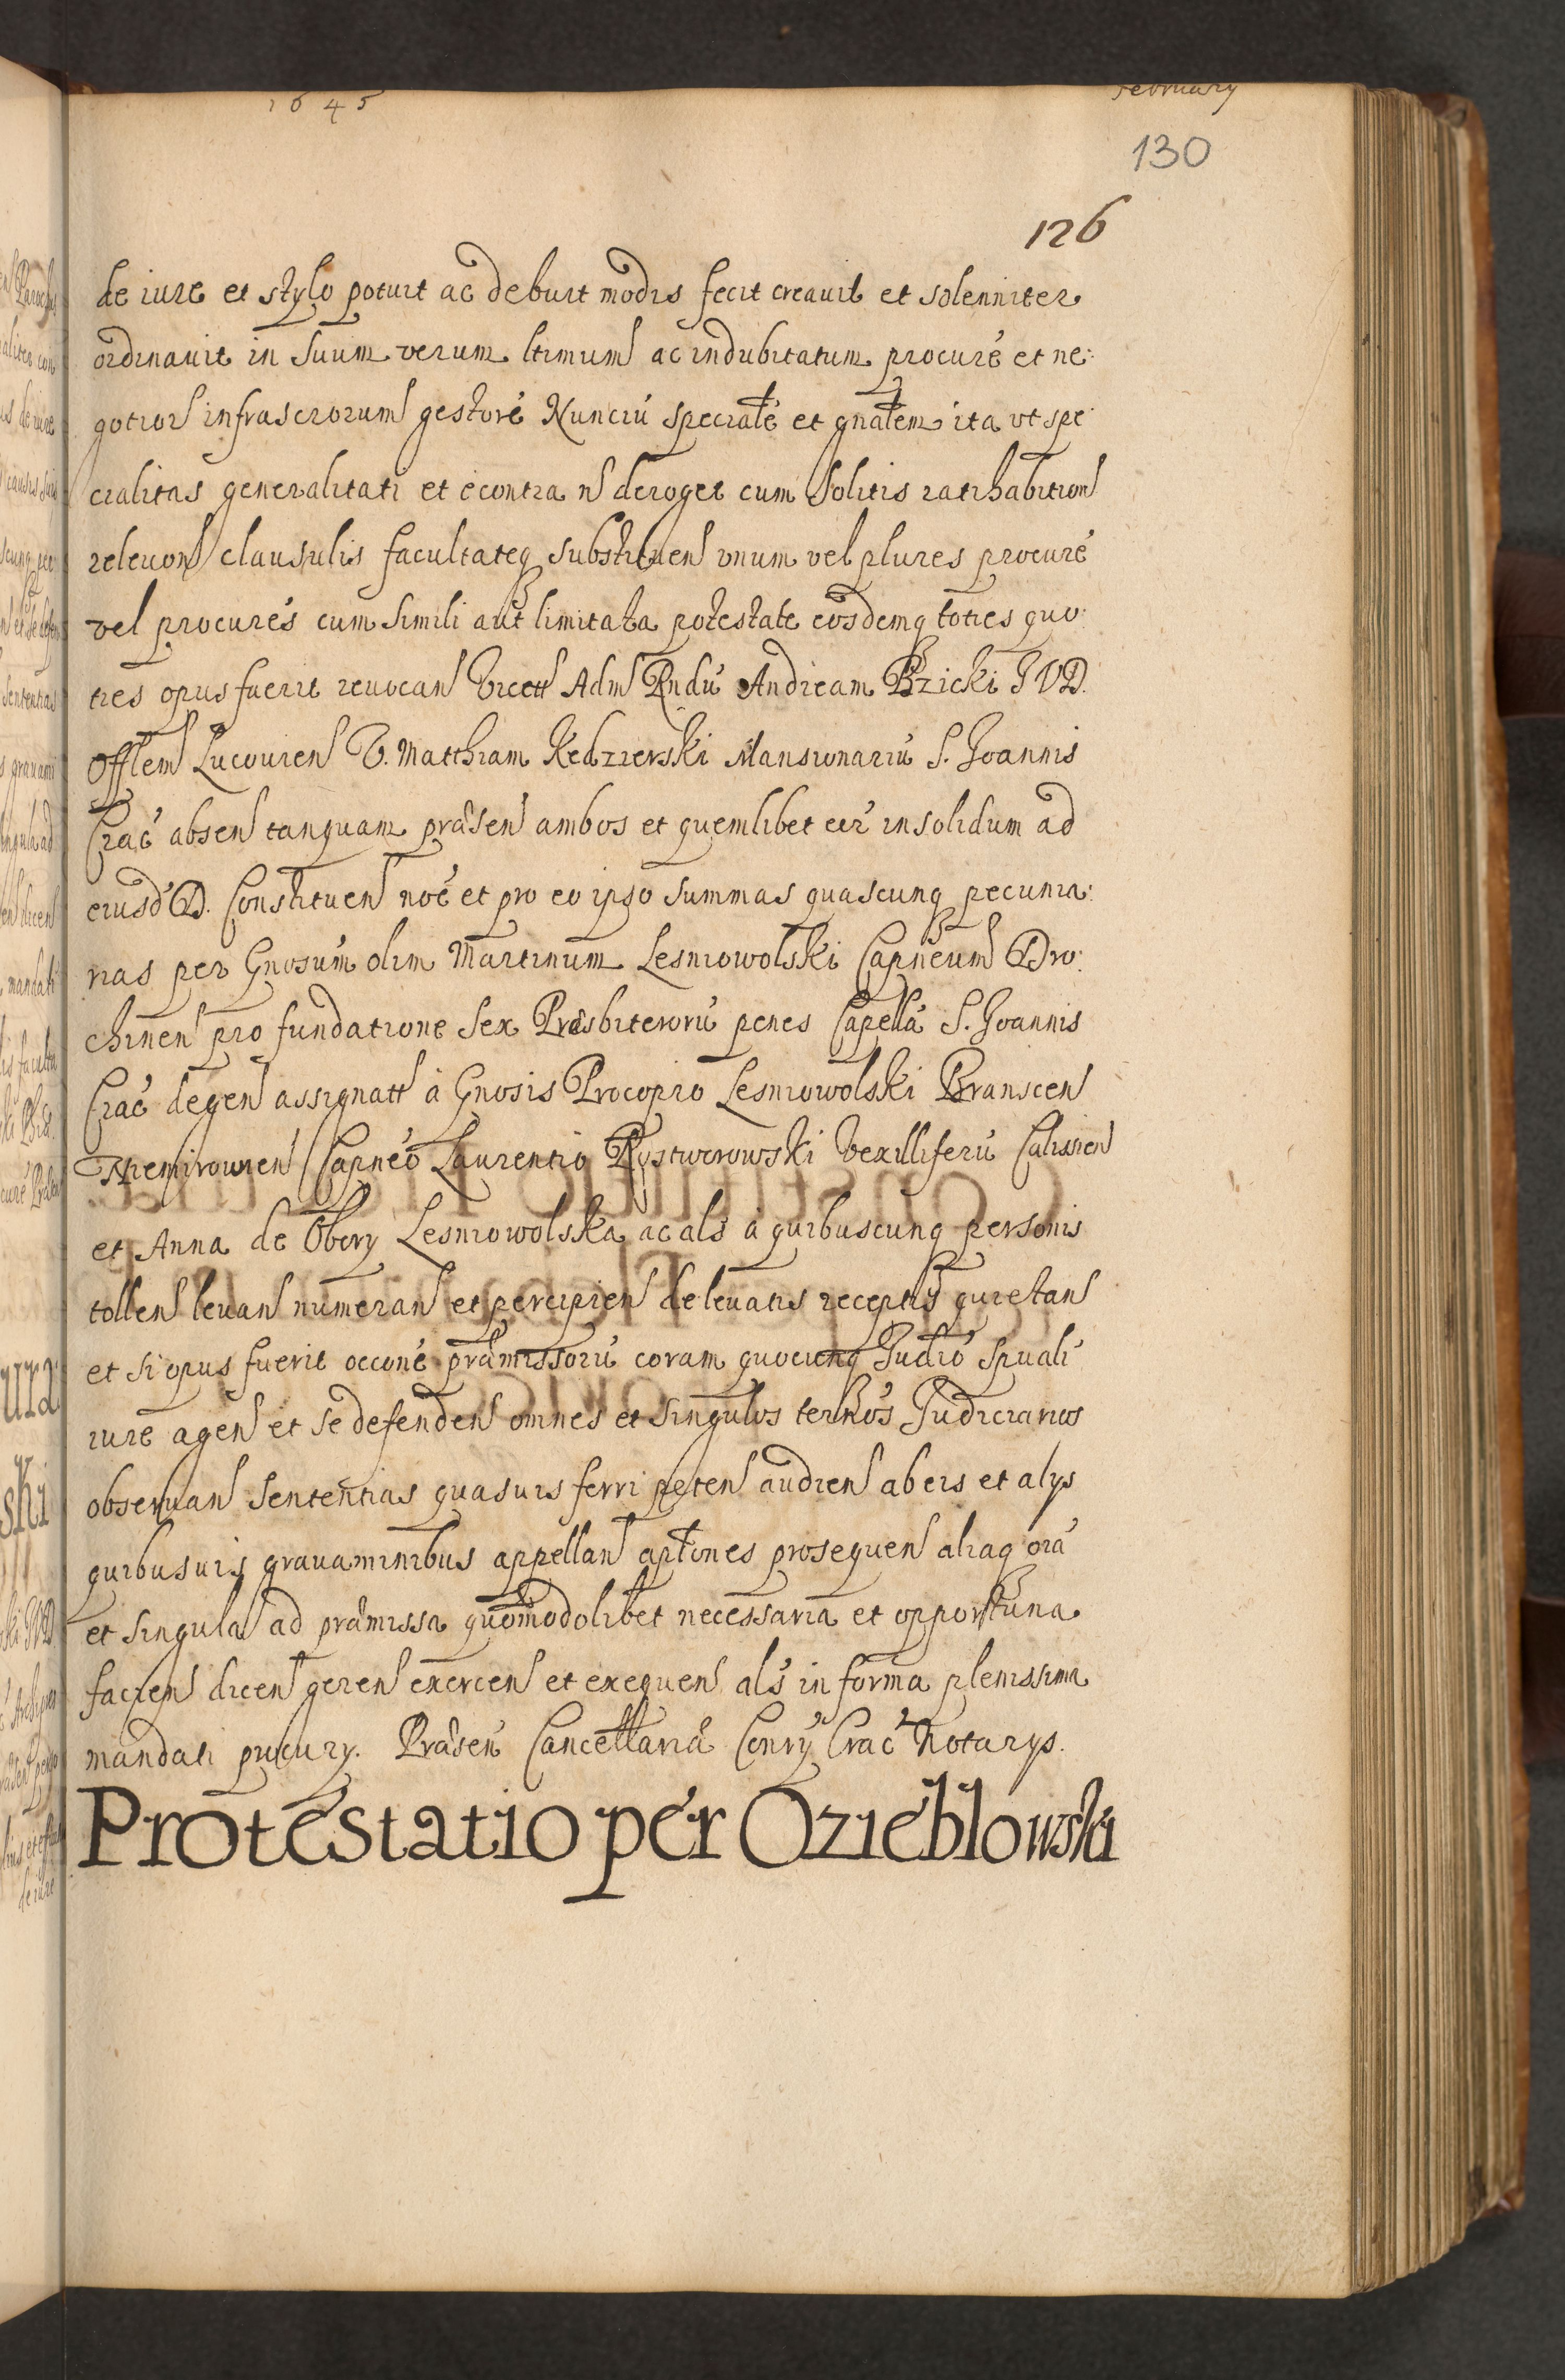 1645 February
130
126
de iure et stylo potuit ac debuit modis fecit creavit et solenniter
ordinauit in suum verum ltimum ac indubitatum procuré et ne:
gotior infrascrorum gestoré Nunciú specialé et gnalem ita vt spe
cialitas generalitati et econtra n deroget cum solitis ratihabition
releuon clausulis facultateq substituen vnum vel plures procuré
vel procurés cum simili aut limitata potestate eosdemq toties quo:
ties opus fuerit reuocan Vicett Adm Rndú Andream Bzicki JVD.
Offlem Lucouien V. Matthiam Kedzierski Mansionariú S. Joannis
Crac absen tanquam præsen ambos et quemlibet eor insolidum ad
eiusd D. Constituen noé et pro eo ipso summas quascunq pecunia:
rias per Gnosum olim Martinum Lesniowolski Capneum Dro:
chinen pro fundatione sex Præsbiterorú penes Capellá S. Joannis
Crac degen assignatt à Gnosis Procopio Lesniowolski Branscen
Niemirouien Capneo Laurentio Rostworowski Vexilliferú Calissien
et Anna de Obory Lesniowolska ac als a quibuscunq personis
tollen leuan numeran et percipien de leuatis receptisq quietan
et si opus fuerit occone præmissorú coram quocunq Judio spuali
iure agen et se defenden omnes et singulos terminos Judiciarios
obseruan sententias quasuis ferri peten audien ab eis et alys
quibusuis grauaminibus appellan aptiones prosequen aliaq oia
et singula ad præmissa quomodolibet necessaria et opportuna
facien dicen geren exercen et exequen als in forma plenissima
mandati pucury. Præsen Cancellariæ Conry Crac Notarys.
Protestatio per Oziebłowski